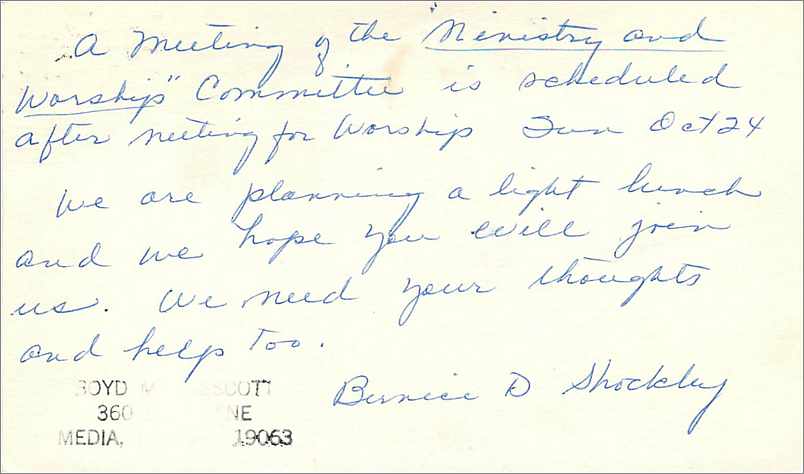 A Meeting of the "Ministry and
Worship" Committee is scheduled
after meeting for Worship Sun Oct 24
We are planning a light lunch
and we hope you will join
us. We need your thoughts
and help too.
Bernice D Shockley
BOYD
360 NE
MEDIA, 19063